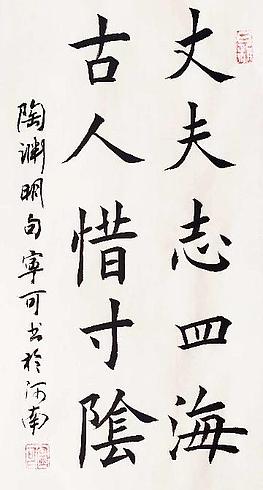 丈夫志四海
古人惜寸陰
陶淵明句寧可书於河南